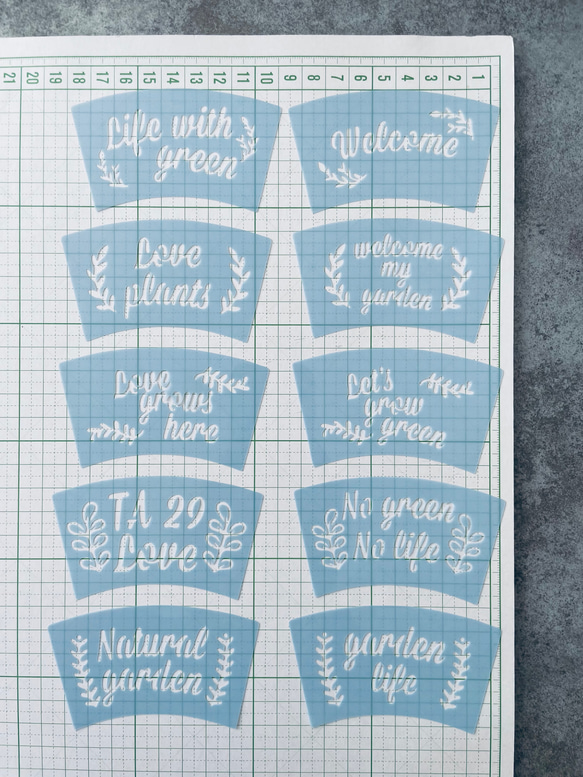 21 20 19 18 17 16 15 14 13 12 11 10 9 8 7 6 5 4 3 2 1
Life with
green
Welcome
Love
plants
welcome
my
garden
Love
grows
here
Let's
grow
green
TA 29
Love
No green
No life
Natural
garden
garden
life